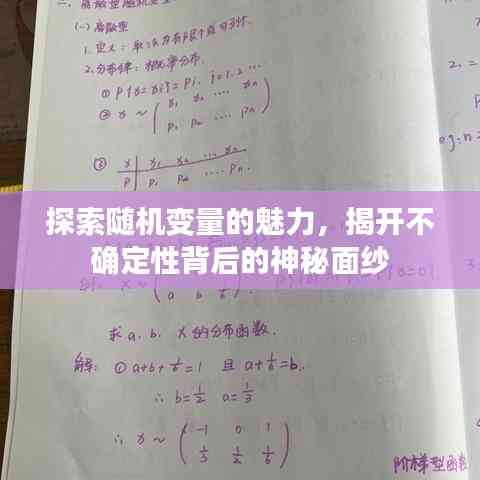 (一) 离散型
1. 定义: 取值为有限个或可列个
2. 分布律: 概率分布.
① P{X=xi}=Pi, i=1.2 ...
② X ~ ( x1 x2 ... xn
P1 P2 ... Pn )
③ X | x1 x2 ... xn
P | P1 P2 ... Pn.
探索随机变量的魅力，揭开不
确定性背后的神秘面纱
X ~
a b 1/6
求 a. b. X的分布函数.
解: ① a+b+1/6=1 且 a+1/6=b.
∴ b=1/2 a=1/3
∴ X ~ ( -1 0 1
1/3 1/2 1/6 )
2.
eg:
阶梯型函数